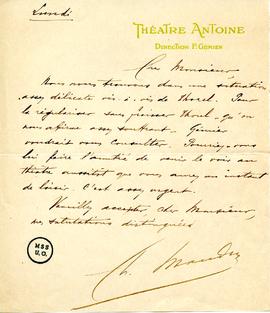 Lundi
THÉATRE ANTOINE
DIRECTION F. GÉMIER
Cher Monsieur,
Nous nous trouvons dans une situation
assez délicate vis-à-vis de Thorel. Pour
la régulariser sans froisser Thorel – qu'on
nous affirme assez souffrant – Gémier
voudrait vous consulter. Pourriez-vous
lui faire l'amitié de venir le voir au
théâtre aussitôt que vous aurez un instant
de loisir. C'est assez urgent.
Veuillez accepter cher Monsieur,
mes salutations distinguées
MSS
U.O.